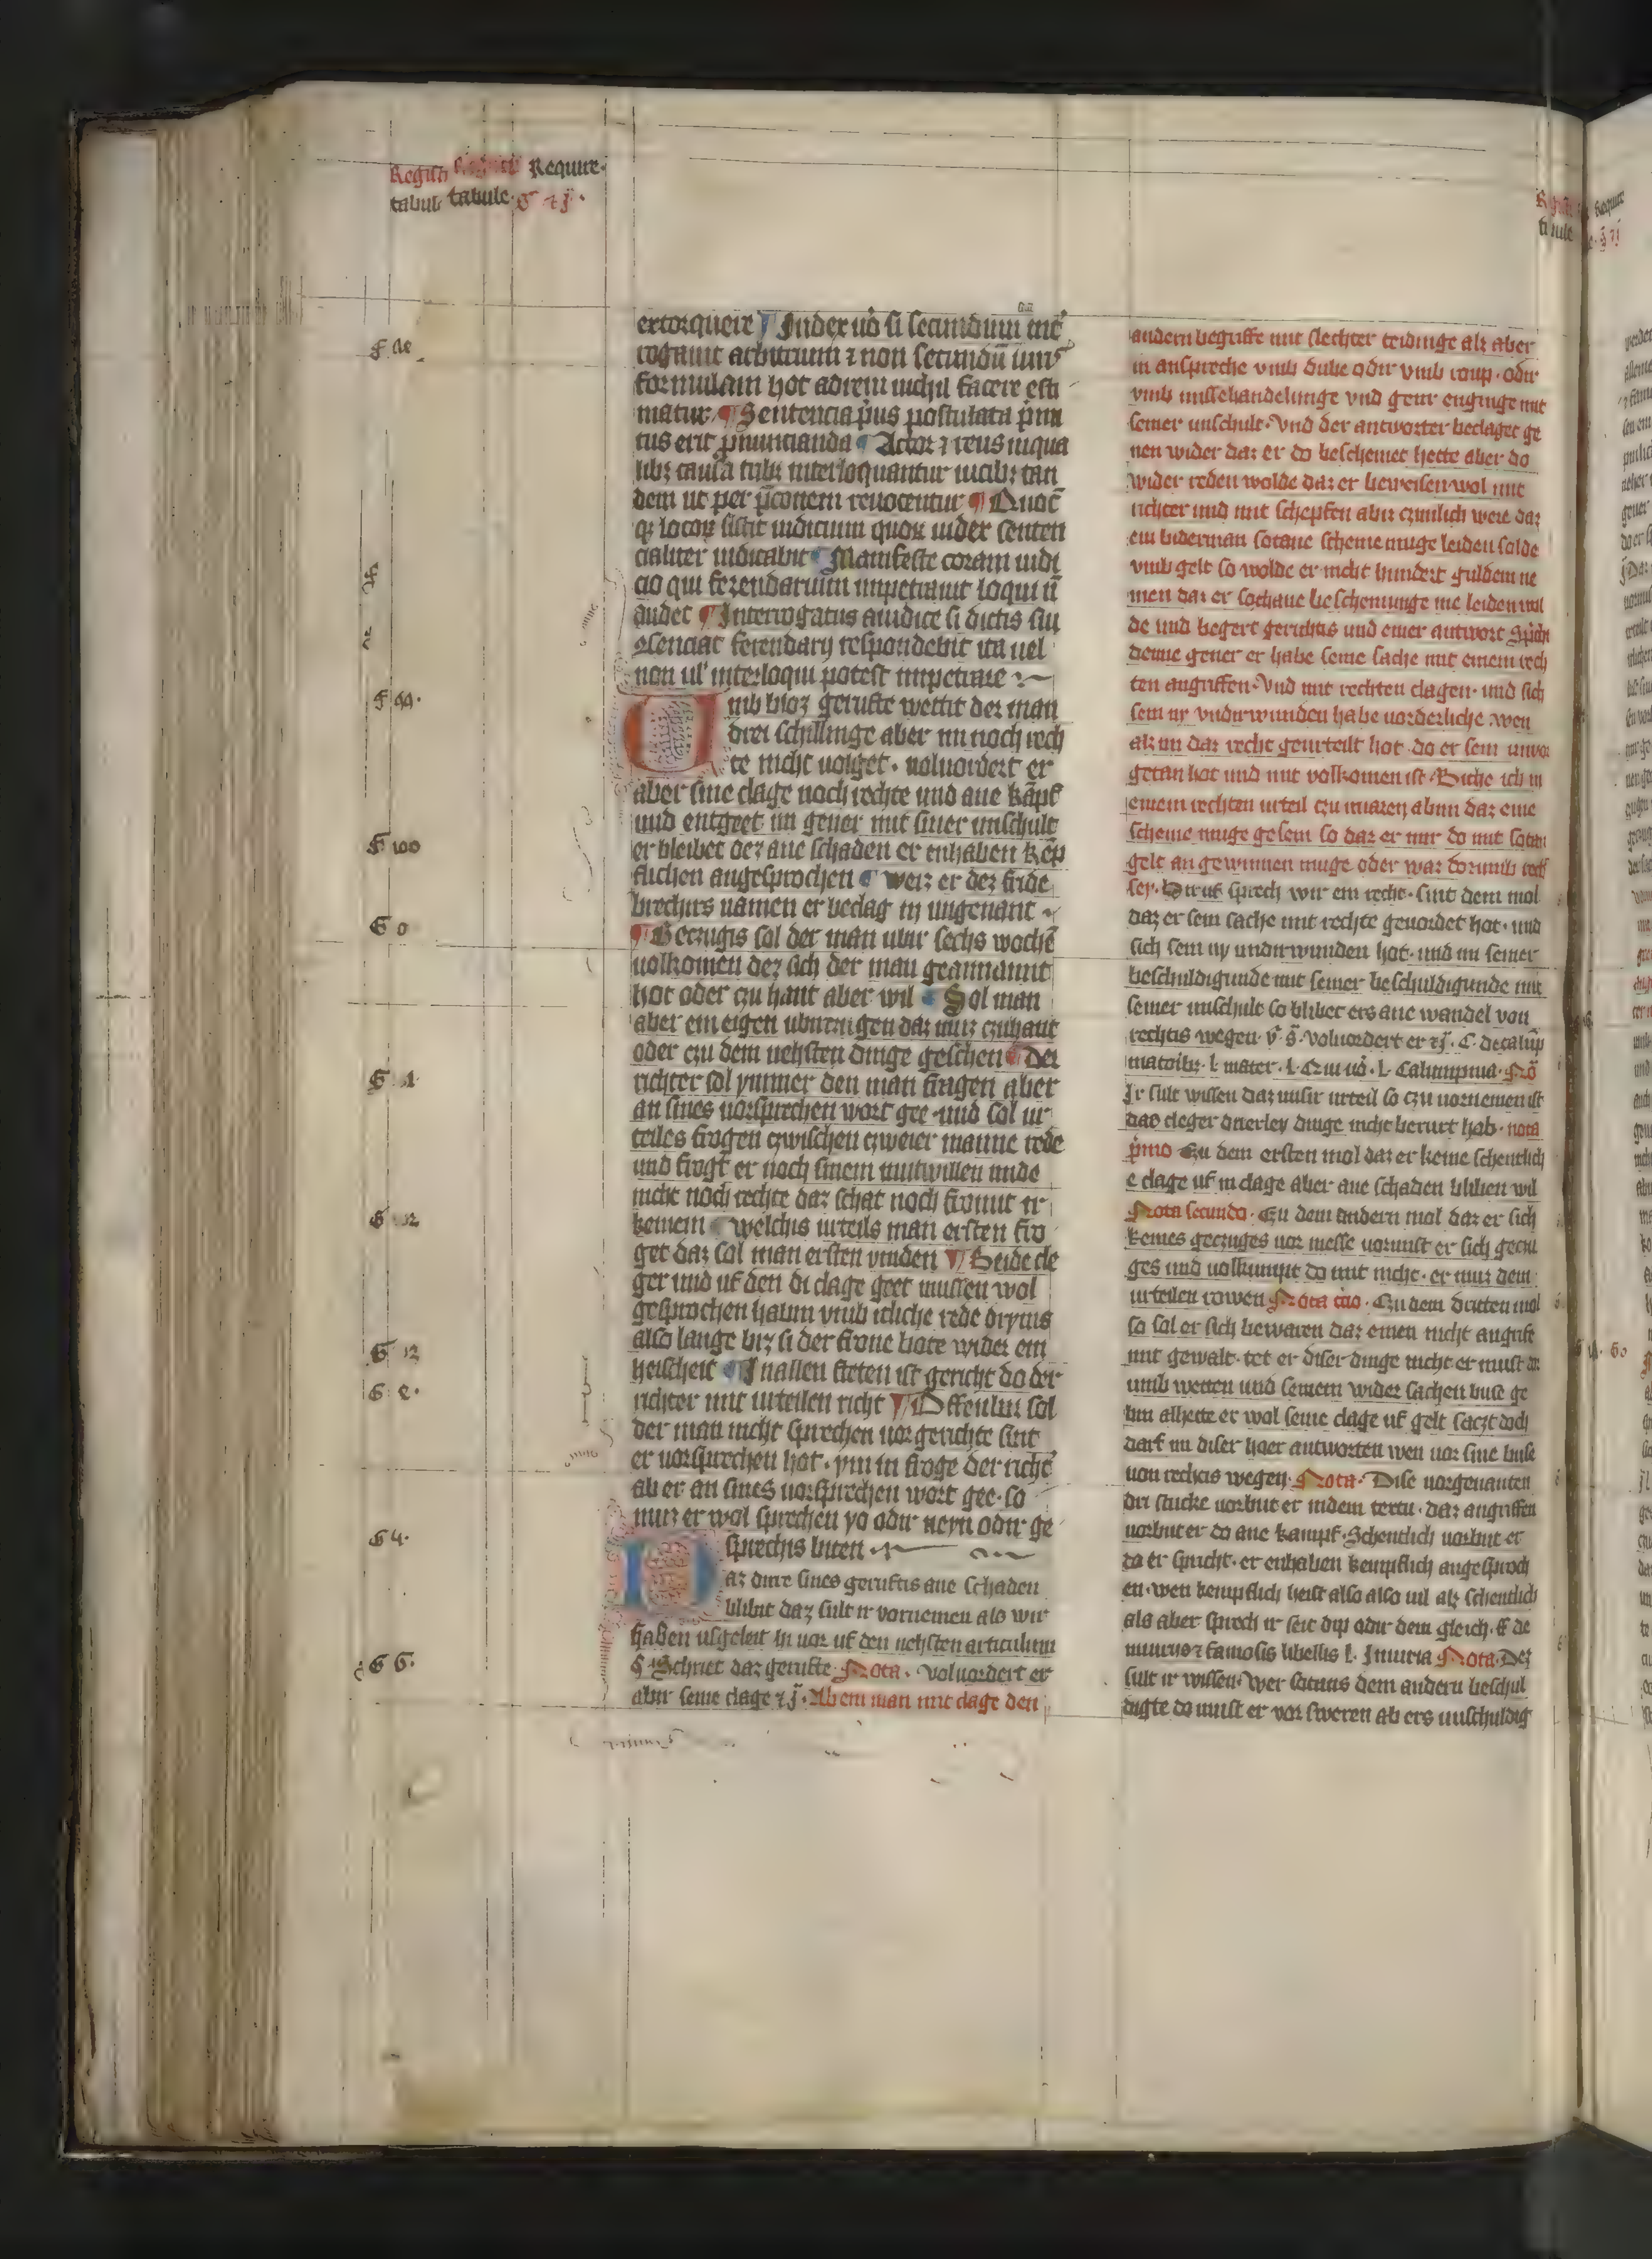 Require
tabule
extorquere Iudex uo si secundum int
rogauit arbitrium ⁊ non secundu iuris
formulam hot adrem nichil facere esti
matur Sentencia prius postulata primi
tus erit pronuncianda Actor ⁊ reus inqua
libz causa tribz interloquantur uicibz tan
dem ut per preconem reuocentur
qz locorz sistit iudicium quorz iudex senten
cialiter iudicabit Manifeste coram iudi
cio qui ferendarium impetrauit loqui
audet Interrogatus aiudice si dictis sui
ferendarij respondebit ita uel
non ul' interloqui potest impetrare
Umb bloz gerufte wettit der man
drei schillinge aber im noch rech
te nicht uolget · uoluordert er
aber sine clage noch rechte und ane kāpf
und entgeet im gener mit siner unschult
er bleibet dez ane schaden er enhaben kēp
flichen angesprochen weiz er dez fride
brechirs namen er beclag in ungenant
Geczugis sol der man ubir sechs wochē
uolkomen dez sich der man geannamit
hot oder czu hant aber wil Sol man
aber ein eigen ubirczugen daz muz czuhant
oder czu dem nehsten dinge geschen Der
richter sol ymmer den man fragen aber
an sines uorsprechen wort gee und sol ur
teiles fragen czwischen czweier manne rede
und frogt er noch sinem mutwillen unde
nicht noch rechte daz schat noch fromt ir
keinem welchis urteils man ersten fro
get daz sol man ersten vinden Beide cle
ger und uf den di clage geet mussen wol
gesprochen habin vmb itliche rede dryms
also lange biz si der frone bote wider ein
heischeit In allen steten ist gericht do der
richter mit urteilen richt Offenbir sol
der man nicht sprechen uor gerichte sint
er uorsprechen hot · ym in froge der richt̄
ab er an sines uorsprechen wort gee · so
muz er wol sprechen yo odir neyn odir ge
sprechis biten
Daz dirre sines geruftis ane schaden
blibit daz sult ir vornemen als wir
haben usgeleit in uor uf den nehsten articulum
§ Schriet daz gerufte Nota · voluordert er
abir seine clage ⁊ Ab ein man mit clage den
andern begriffe mit slechter teidinge alz aber
in anspreche vmb dube odir vmb roup · odir
vmb missehandelunge vnd geur enginge mit
seiner unschult · Vnd der antworter beclaget ge
nen wider daz er do beschemet hette aber do
wider reden wolde daz er beweisen wol mit
richter und mit schepfen abir czimlich were daz
ein biderman sotane scheme muge leiden solde
vmb gelt so wolde er nicht hundert guldein ne
men daz er sothane beschemunge nie leiden wil
de und begert gerichtis und einer antwort Spricht
denne gener er habe seine sache mit einem rech
ten angriffen · Vnd mit rechten clagen · und sich
sein ny vndirwunden habe uorderliche wen
alz im daz recht geurteilt hot do er sein
getan hot und mit volkomen ist · Biche ich in
einem rechten urteil czu abinn daz eine
scheme muge gesein so daz er mir do mit
gelt an gewinnen muge oder waz dorumb recht
sey · Biruf sprech wir ein recht · sint dem mol
daz er sein sache mit rechte geuordet hot · und
sich sein ny undirwunden hot · und im seiner
beschuldigunde mit seiner beschuldigunde mit
seiner unschult so blibet ers ane wandel von
rechtis wegen · v̄ s̄ · voluordert er ⁊ · C · de calūp
matoribz · l · mater · l · Qui uo · l · Calumpnia · No
Ir sult wissen daz unsir urteil so czu uornemen ist
das cleger drierley dinge nicht berurt hab · nota
primo Czu dem ersten mol daz er keine schentlich
e clage uf in clage aber ane schaden bliben wil
Nota secundo · Czu dem andern mol daz er sich
keines geczuges uor messe uormist er sich geczu
ges und uolkumpt do mit nicht · er muz dem
urteilen rowen Nota tcio · Czu dem dritten mol
so sol er sich bewaren daz einen nicht angrife
mit gewalt · tet er diser dinge nicht er must
umb wetten und seinem wider sachen buse ge
bin alhette er wol seine clage uf gelt saczt doch
darf im diser hoer antworten wen uor sine buse
uon rechtis wegen · Nota · Dise uorgenanten
dri stucke uorbut er indem textu · daz angriffen
uorbut er do ane kampf · Schentlich uorbut er
do er spricht · er enhaben kempflich angesproch
en · wen kempflich heist also also uil alz schentlich
als aber sprech ir seit dip odir dem gleich · ff de
iniuriis ⁊ famosis libellis l · Iniuria Nota · Dez
sult ir wissen · Wer sotanis dem andern beschul
digte do must er vor sweren ab ers unschuldig